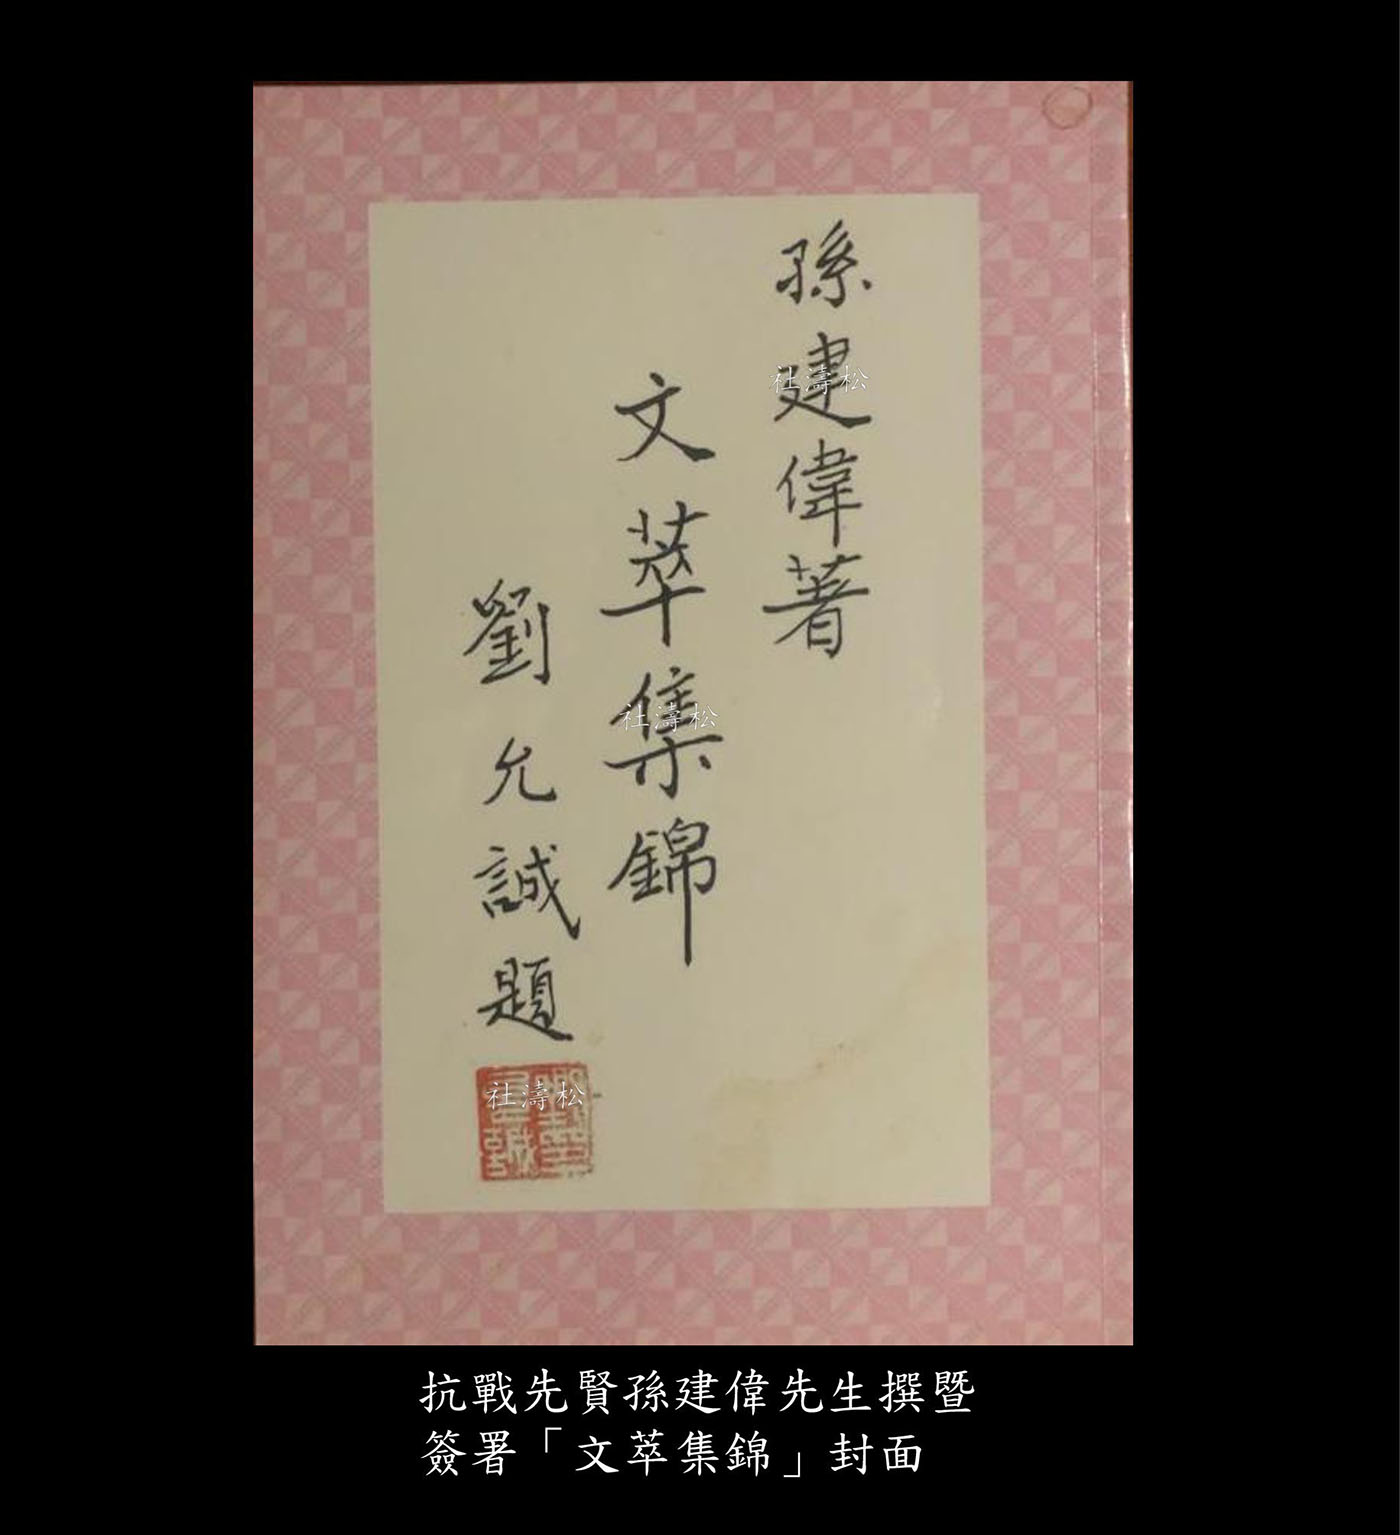 孫建偉著
文萃集錦
劉允誠題
松濤社
松濤社
松濤社
抗戰先賢孫建偉先生撰暨
簽署「文萃集錦」封面